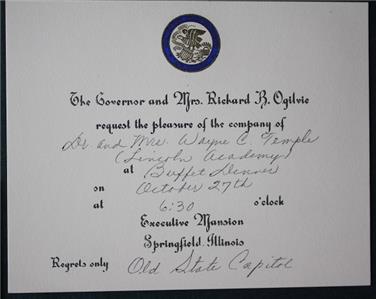 The Governor and Mrs. Richard B. Ogilvie
request the pleasure of the company of
Dr. and Mrs. Wayne C. Temple
(Lincoln Academy)
at Buffet Dinner
on October 27th
at 6:30 o'clock
Executive Mansion
Springfield, Illinois
Regrets only Old State Capitol